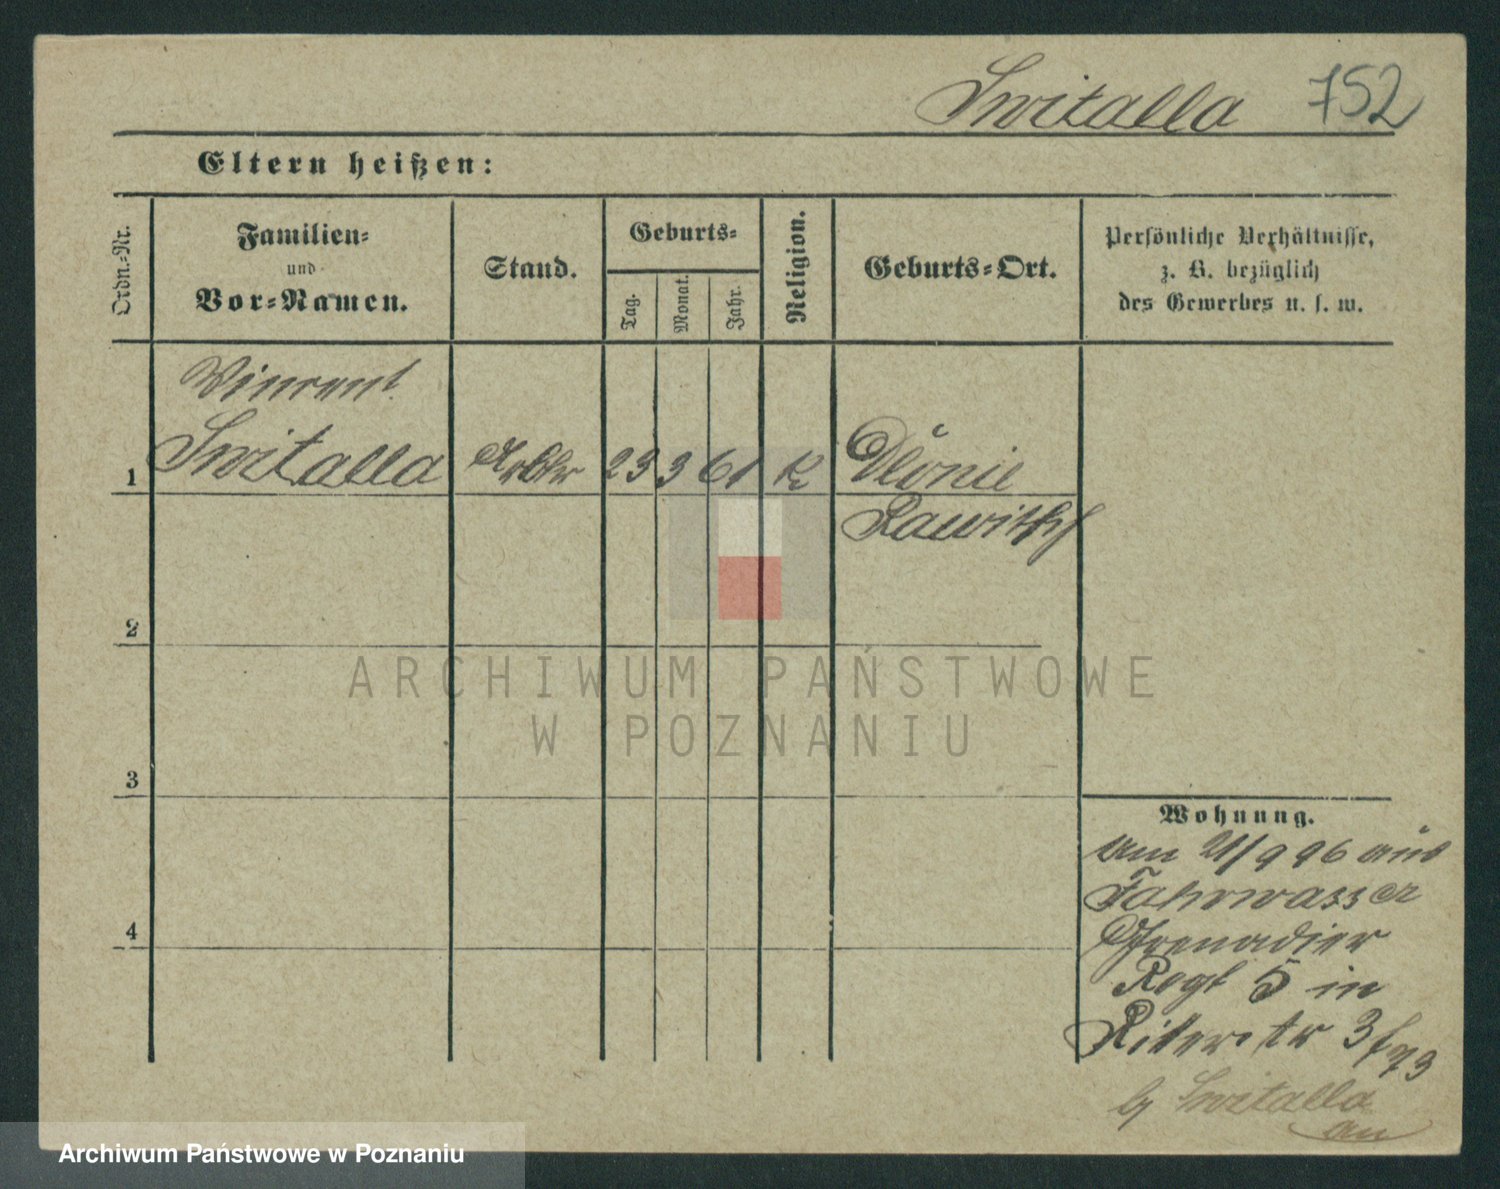 Switalla 752
Eltern heißen:
Ordn.-Nr.
Familien-
und
Vor-Namen.
Stand.
Geburts-
Tag.
Monat.
Jahr.
Religion.
Geburts-Ort.
Persönliche Verhältnisse,
z. B. bezüglich
des Gewerbes u. s. w.
Vincent
1 Switalla Arbtr 23 3 61 K Dlonie
Rawitsch
2
ARCHIWUM PAŃSTWOWE
W POZNANIU
3
Wohnung.
am 21/9 96 aus
Fahrwasser
4
Grenadier
Regt 5 in
Ritterstr 3
b/ Switalla
an
Archiwum Państwowe w Poznaniu